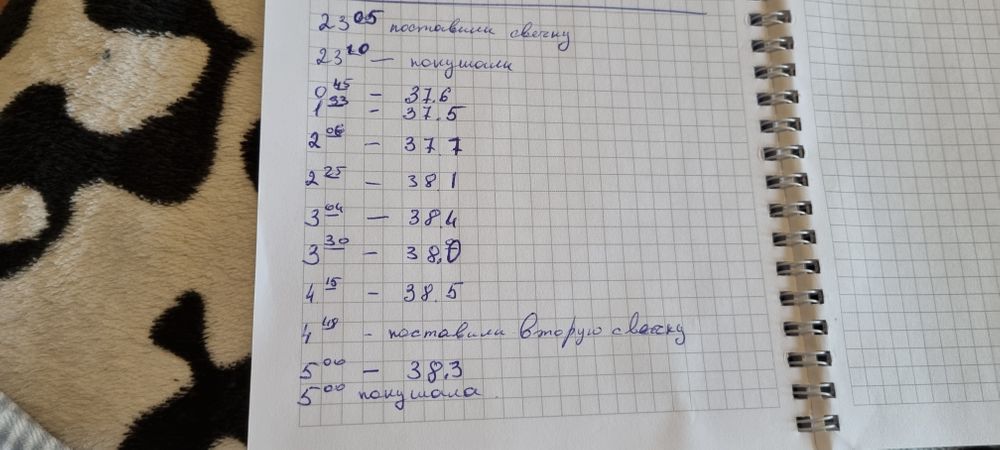 23 05 поставили свечку
23 10 — покушали
0 45 - 37.6
1 33 - 37.5
2 06 — 37.7
2 25 — 38.1
3 04 — 38.4
3 30 — 38,0
4 15 - 38.5
4 48 - поставили вторую свечку
5 00 — 38.3
5 00 покушала